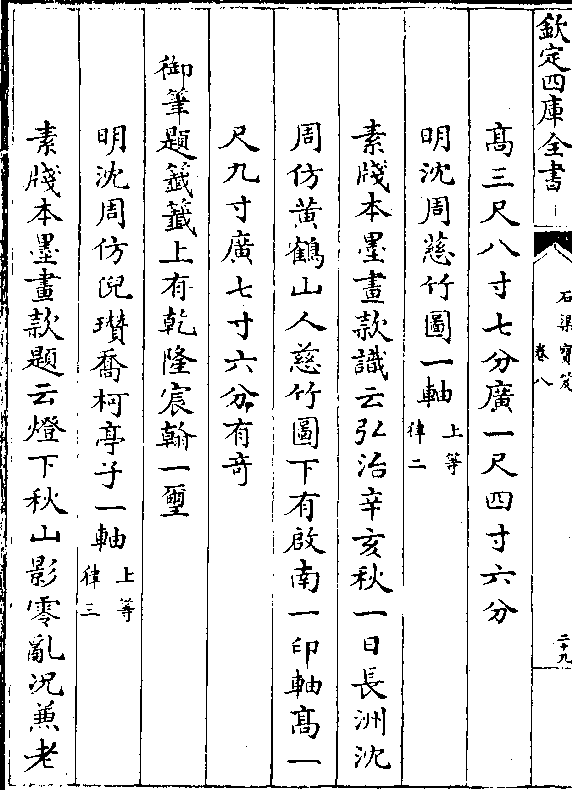 欽定四庫全書
石渠寶笈
卷八
二十九
高三尺八寸七分廣一尺四寸六分
明沈周慈竹圖一軸 上等 律二
素牋本墨畫款識云弘治辛亥秋一日長洲沈
周仿黄鶴山人慈竹圖下有啟南一印軸高一
尺九寸廣七寸六分有奇
御筆題籤籤上有乾隆宸翰一璽
明沈周仿倪瓚喬柯亭子一軸 上等 律三
素牋本墨畫款題云燈下秋山影零亂況兼老